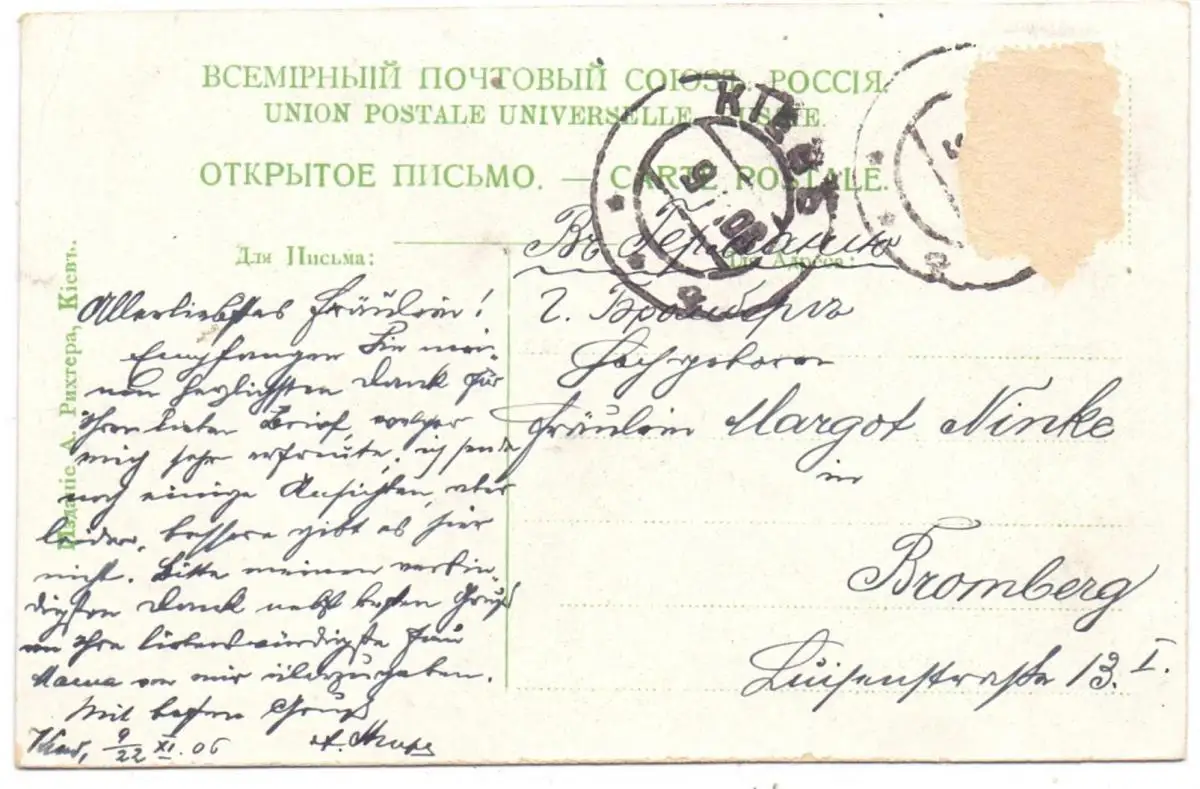 ВСЕМІРНЫЙ ПОЧТОВЫЙ СОЮЗЪ. РОССІЯ.
UNION POSTALE UNIVERSELLE. RUSSIE.
ОТКРЫТОЕ ПИСЬМО. — CARTE POSTALE.
Для Письма:
Для Адреса:
КІЕВЪ
9
06
Изданіе А. Рихтера, Кіевъ.
Въ Германію
г. Бромбергъ
Hochgeboren
Fräulein Margot Ninke
in
Bromberg
Luisenstraße 13. I.
Allerliebstes Fräulein!
Empfangen Sie mei-
nen herzlichsten Dank für
Ihren lieben Brief, welcher
mich sehr erfreute, ich sende
noch einige Ansichten, aber
leider, bessere gibt es hier
nicht. Bitte meinen verbin-
digsten Dank nebst besten Gruß
an Ihre liebenswürdigste Frau
Mama von mir
Mit besten Gruß
Kiew, 9/22 XI. 06